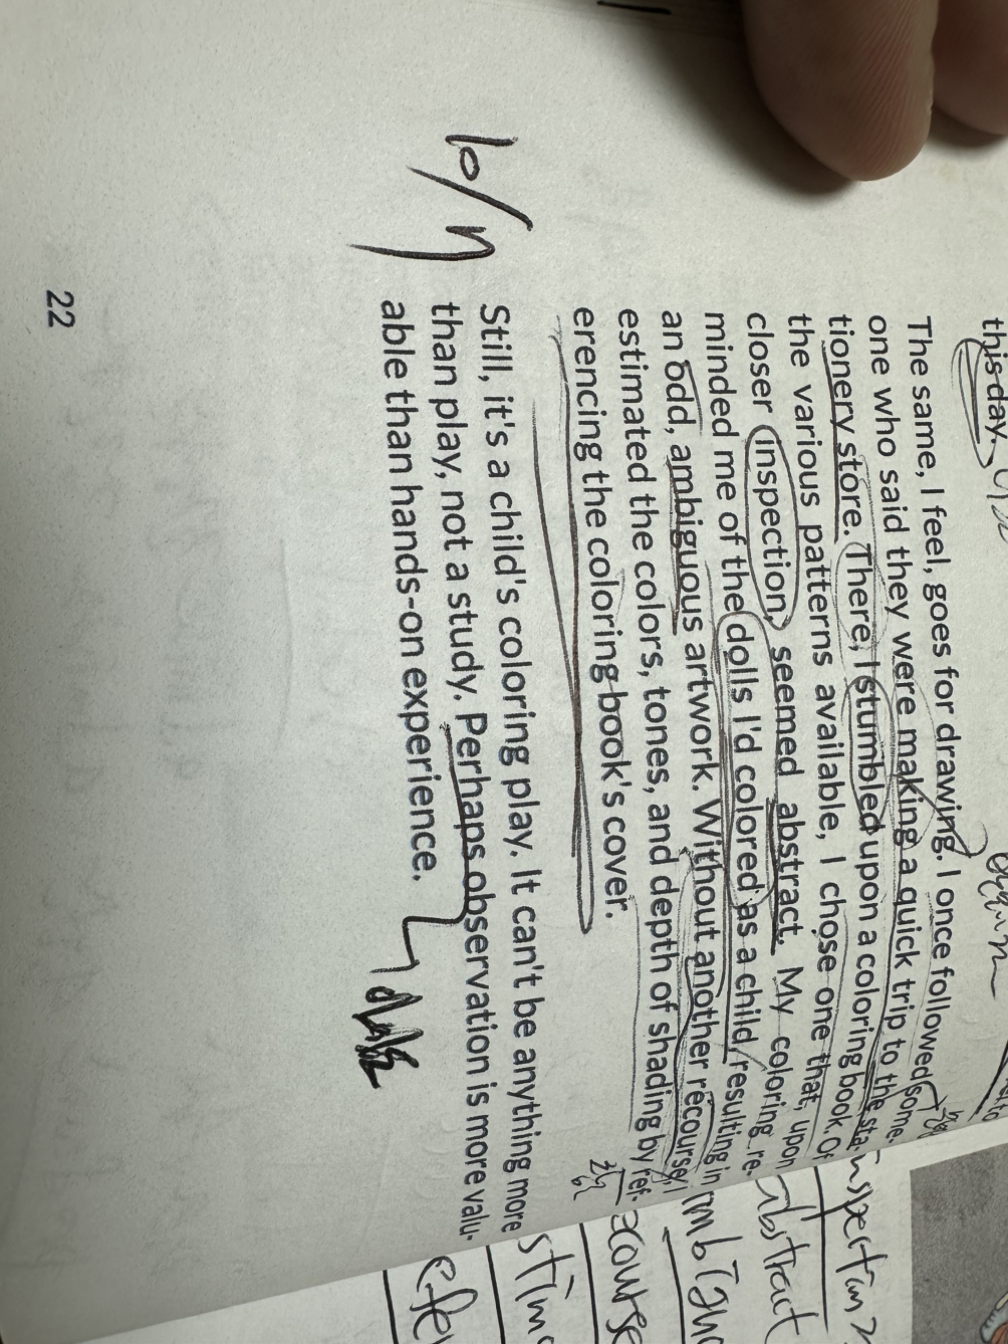 this day.
The same, I feel, goes for drawing. I once followed some-
one who said they were making a quick trip to the sta-
tionery store. There, I stumbled upon a coloring book. Of
the various patterns available, I chose one that, upon
closer inspection, seemed abstract. My coloring re-
minded me of the dolls I'd colored as a child, resulting in
an odd, ambiguous artwork. Without another recourse, I
estimated the colors, tones, and depth of shading by ref-
erencing the coloring book's cover.
Still, it's a child's coloring play. It can't be anything more
than play, not a study. Perhaps observation is more valu-
able than hands-on experience.
22
abstract